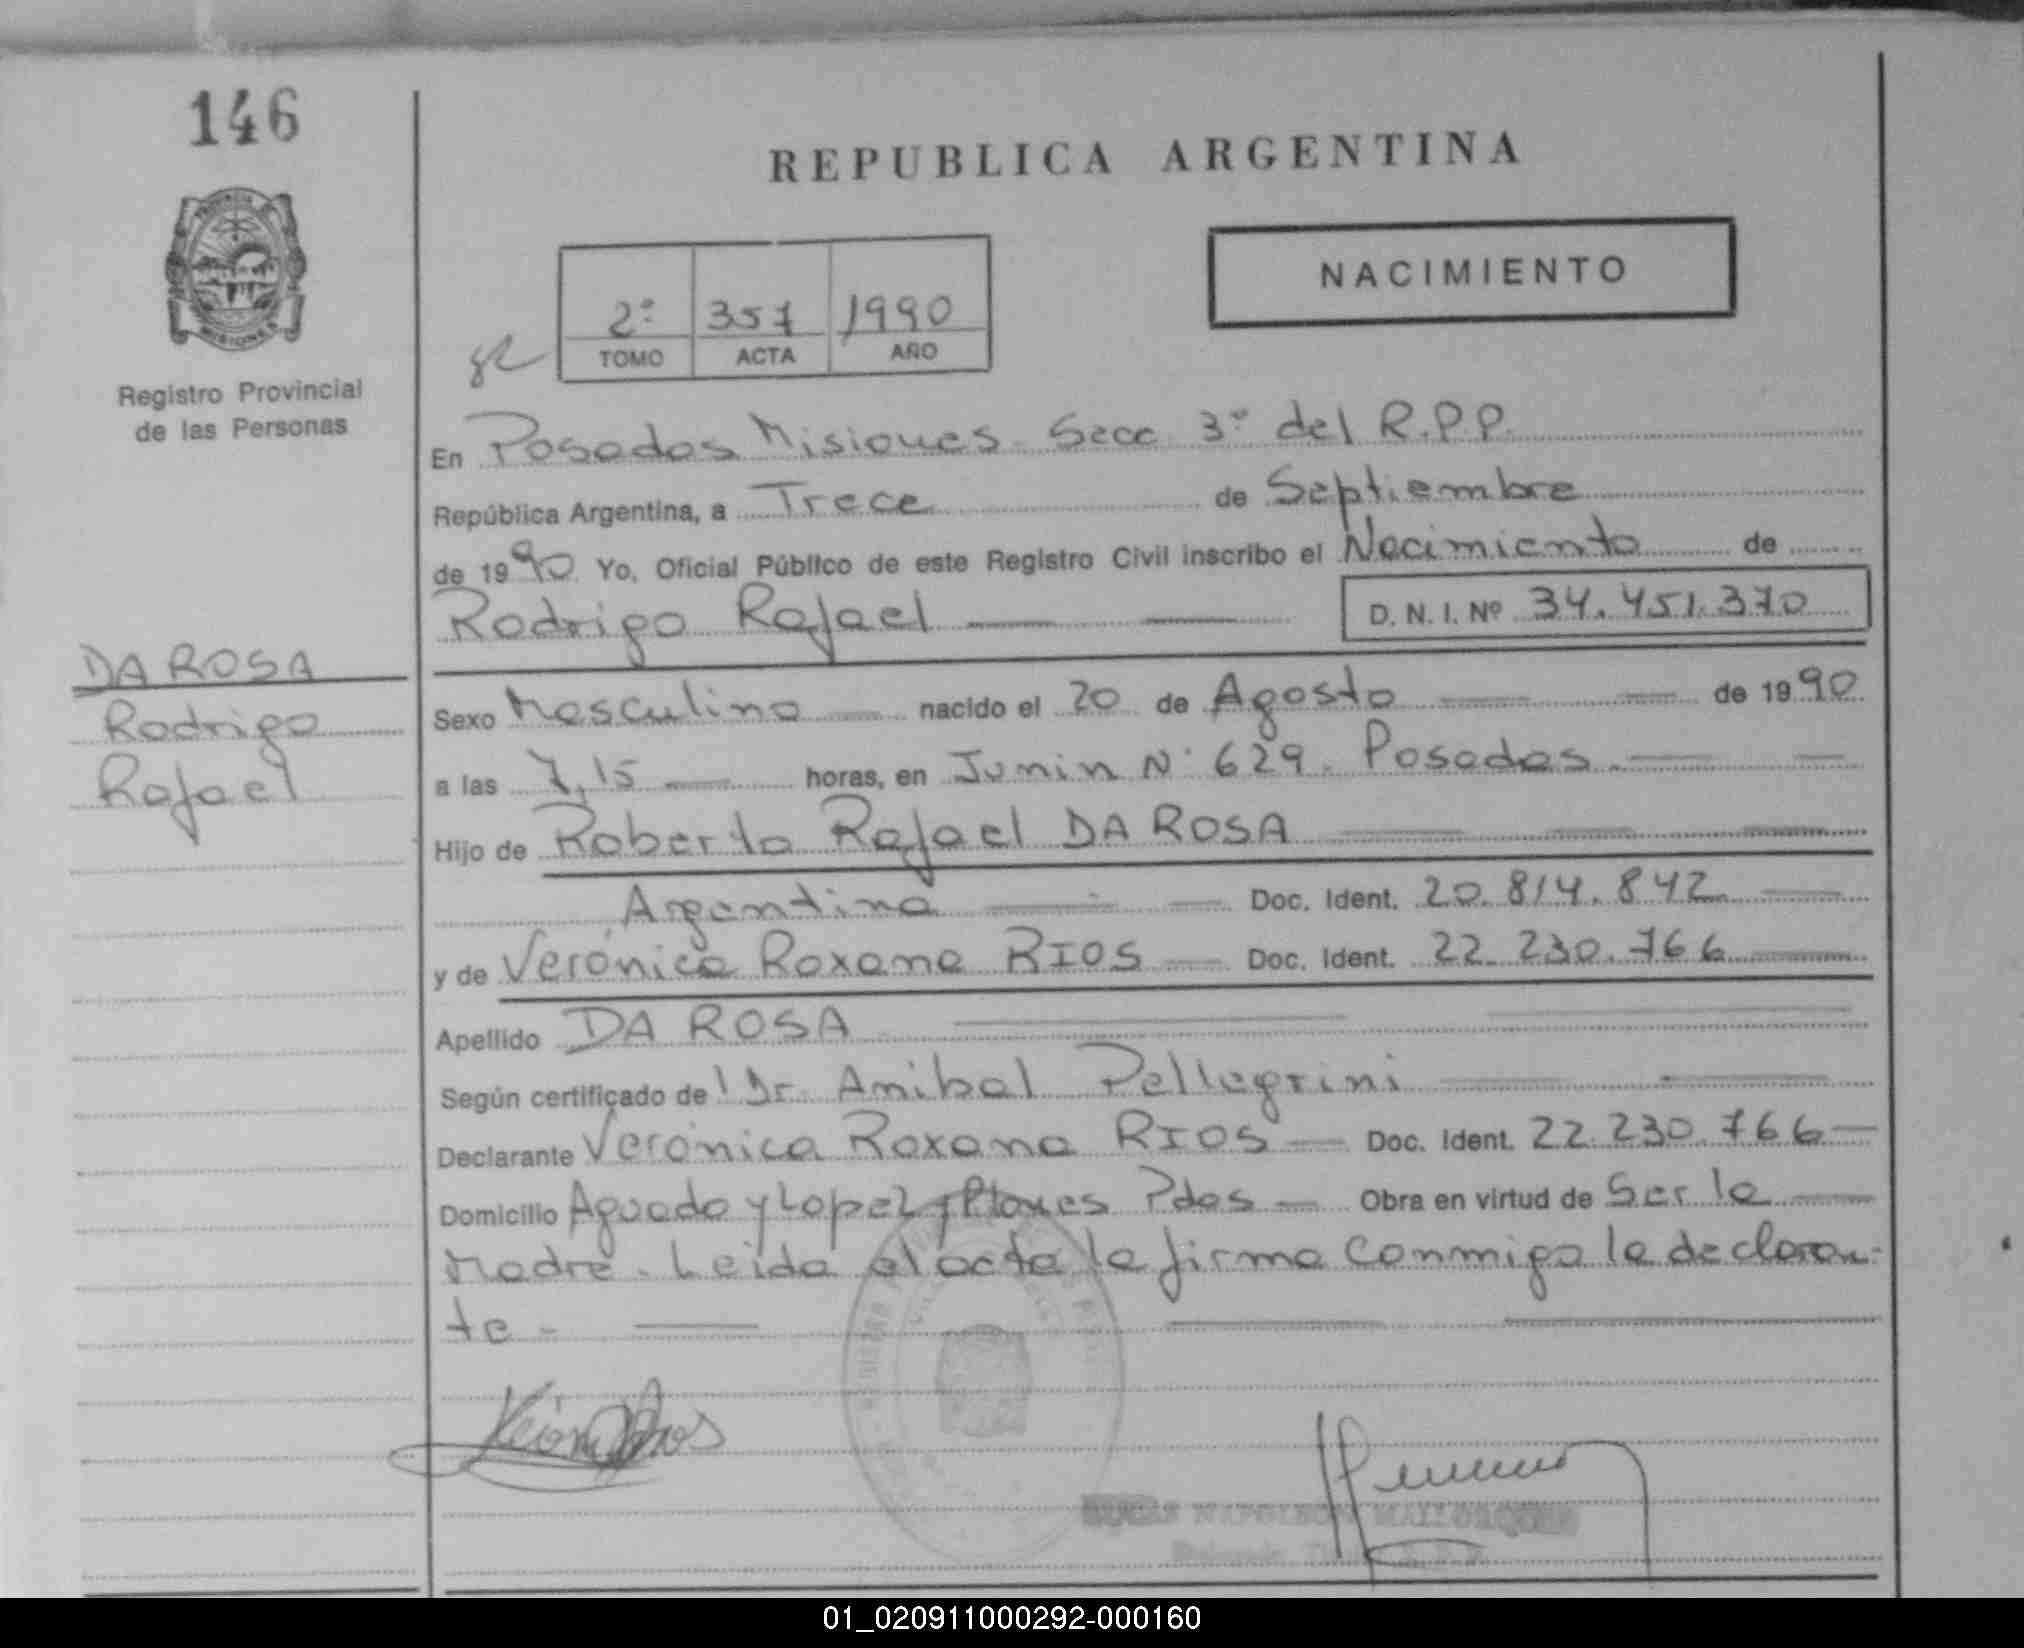 146
REPUBLICA ARGENTINA
PROVINCIA DE
MISIONES
Registro Provincial
de las Personas
NACIMIENTO
2º 357 1990
TOMO ACTA AÑO
En Posadas Misiones Secc 3º del R.P.P.
República Argentina, a Trece de Septiembre
de 1990 Yo, Oficial Público de este Registro Civil inscribo el Nacimiento de
Rodrigo Rafael D. N. I. Nº 34.451.370
DA ROSA
Rodrigo
Rafael
Sexo Masculino nacido el 20 de Agosto de 1990
a las 7,15 horas, en Junin Nº 629. Posadas.
Hijo de Roberto Rafael DA ROSA
Argentina Doc. Ident. 20.814.842
y de Verónica Roxana RIOS Doc. Ident. 22.230.766
Apellido DA ROSA
Según certificado de Dr. Anibal Pellegrini
Declarante Verónica Roxana RIOS Doc. Ident. 22.230.766
Domicilio Aguado y Lopez y Planes Pdas Obra en virtud de Ser la
Madre. Leida el acta la firma conmigo la declaran-
te.
NAPOLEON
01_020911000292-000160